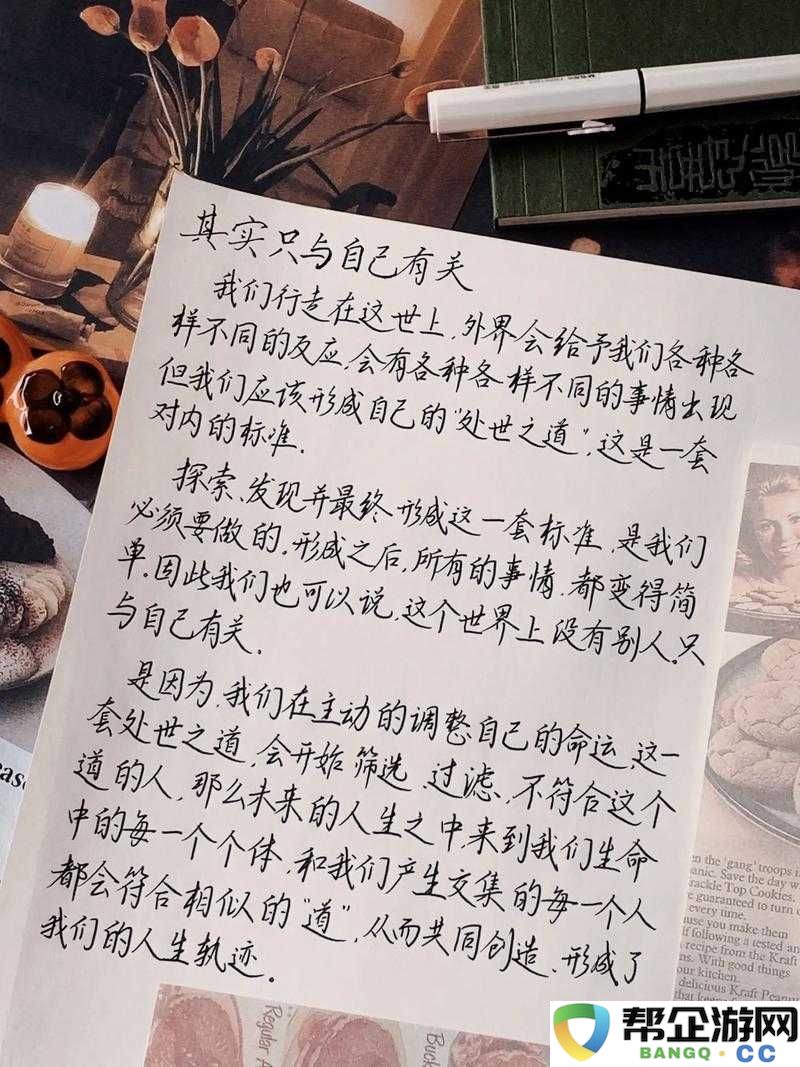 其实只与自己有关
我们行走在这世上,外界会给予我们各种各
样不同的反应,会有各种各样不同的事情出现
但我们应该形成自己的“处世之道”,这是一套
对内的标准.
探索、发现并最终形成这一套标准,是我们
必须要做的.形成之后,所有的事情,都变得简
单.因此我们也可以说,这个世界上没有别人.只
与自己有关.
是因为,我们在主动的调整自己的命运,这一
套处世之道,会开始筛选、过滤,不符合这个
道的人,那么未来的人生之中,来到我们生命
中的每一个个体,和我们产生交集的每一个人
都会符合相似的“道”,从而共同创造、形成了
我们的人生轨迹.
en the 'gang' troops in
anic. Save the day w
rackle Top Cookies.
e guaranteed to turn o
every time.
use you make them
f following a tested and
recipe from the Kraft
s. With good things
our kitchen.
delicious Kraft Peanu
that keeps
Regular
Buck
帮企游网
BANGQ.CC